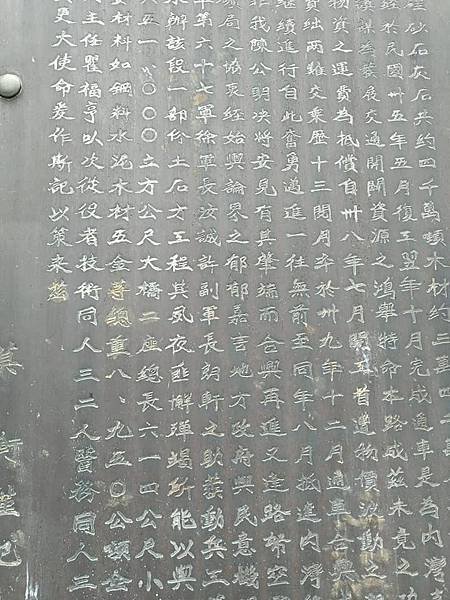 砂石灰石共約四千萬噸木材約三萬四
於民國卅五年五月復工翌年十月完成通車是為內灣支
謀為發展交通開闢資源之鴻舉特命本路成茲未竟之功
物資之運費為抵償自卅八年七月開工首遭物價波動之
資絀两難交乘歷十三閱月卒於卅九年十二月通車合興
繼續進行自此奮勇邁進一往無前至同年八月抵達內灣
我陳公明決將安見有其肇端而合興再進又逢路幣空
局之協衷經始輿論界之郁郁嘉言地方政府與民意機
軍第六十七軍徐軍長汝誠許副軍長朗軒之助發動兵工
承辦該段一部份土石方工程其夙夜匪懈殫竭所能以與
八五一、〇〇〇立方公尺大橋二座總長六一四公尺小
要材料如鋼料水泥木材五金等總重八、九五〇公噸
主任瞿福亨以次從役者技術同人三二人醫務同人三
更大使命爰作斯記以策來茲
莫